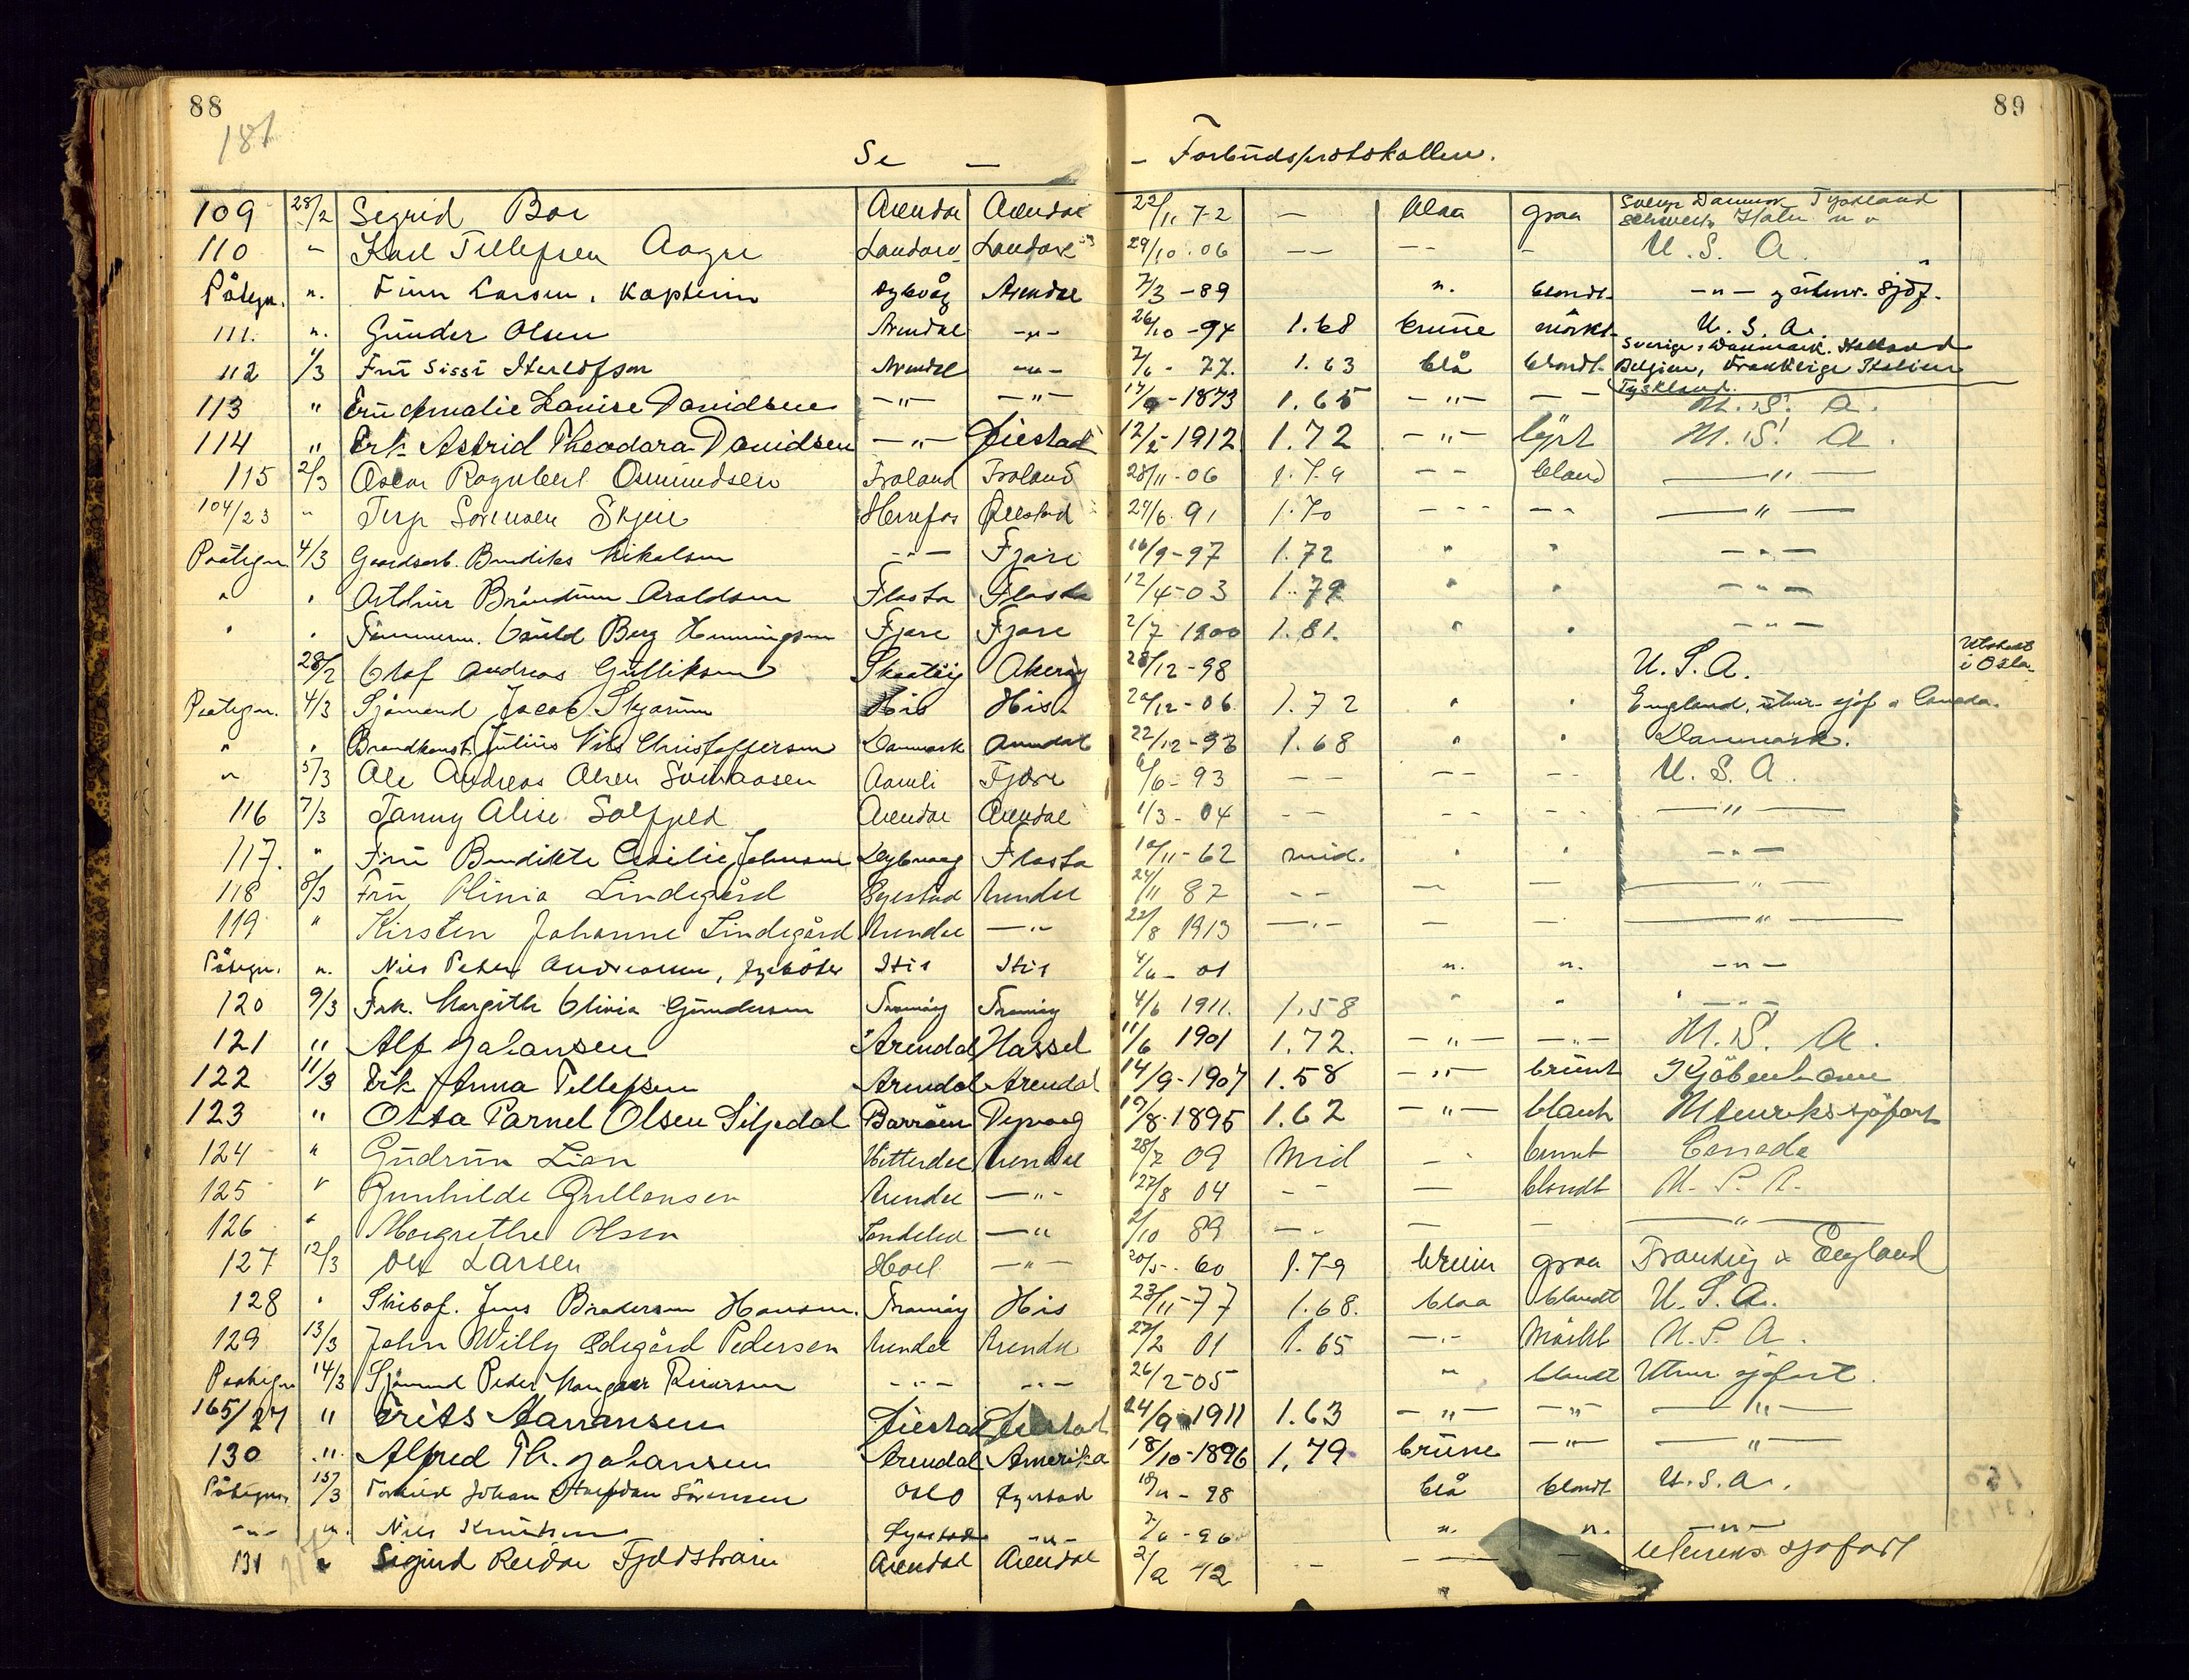 88
89
181
Se — – Forbudsprotokollen.
109 28/2 Sigrid Boe Arendal Arendal 22/11 72 — blaa graa Sverige Danmark Tyskland Schweits Italia
110 " Karl Tellefsen Aagre 29/10 06 — — — — U.S.A.
Påtegn. ". Finn Larsen, Kaptein Dybvåg Arendal 7/3 -89 ". blondt. —"— g utenr. Sjöf.
111. ". Gunder Olsen Arendal —"— 26/10 -94 1.68 brune mörkt. U.S.A.
112 1/3 Fru Sissi Herlofson Arendal —"— 7/6 - 77. 1.63 blå blondt. Sverige, Danmark. Holland Belgien, Frankrige Italien Tyskland.
113 " Fru Amalie Louise Davidsen —"— —"— 1873 1.65 —"— — — U.S.A.
114 " Frk. Astrid Theodora Davidsen —"— Øiestad 12/5 1912 1.72 —"— lyst U.S.A.
115 2/3 Oscar Ragnbert Osmundsen Froland Froland 28/11-06 1.79 — — blond —"—
104/23 " Terje Sørensen Skjeie Herefos Øiestad 29/6. 91 1.70 — — — — —"—
Paategn. 4/3 Gaardsarb. Bendiks Nikolsen —"— Fjære 16/9-97 1.72 " " —"—
" " Arthur Bründtun Araldsen Flosta Flosta 12/4-03 1.79 " " —"—
" " Tømmerm. Berg Henningsen Fjære Fjære 2/7 1900 1.81. " " —"—
28/2 Olaf Andreas Gulliksen Skaatøy Akerøy 28/12-98 U.S.A. Utstedt i Oslo
Paategn. 4/3 Sjømand Jacob Skjærum His His. 20/12-06. 1.72 " " England, utenr. sjøf. & Canada.
" " Brandkonst. Julius Nils Christoffersen Danmark Arendal 22/12-93 1.68 " " Danmark.
" 5/3 Ole Andreas Olsen Aamli Fjære 6/6-93 — — — — — — U.S.A.
116 7/3 Fanny Alise Solfjeld Arendal Arendal 1/3- 04 — — — — — — —"—
117. " Fru Bendikte Cecilie Johnsen Dybvaag Flosta 10/11-62 mid. " " —"—
118 8/3 Fru Olivia Lindegård Øyestad Arendal 24/11 87 — — — — —"—
119 " Kirsten Johanne Lindegård Arendal —"— 22/8 1913 —"— — — —"—
Påtegn. ". Nils Peter Andreasen, fyrbøter His His 4/6- 01 ". ". —"—
120 9/3 Frk. Margith Olivia Gundersen Tromøy Tromøy 4/6 1911. 1.58 " " —"—
121 " Alf Johansen Arendal Hassel 11/6 1901 1.72. —"— —"— U.S.A.
122 11/3 Frk Anna Tellefsen Arendal Arendal 14/9-1907 1.58 —"— brunt Kjöbenhavn
123 " Olsen Siljedal Dypvaag 1895 1.62 —"— blonde Utenrikssjöfart
124 " Gudrun Lian Hitterdal Arendal 28/7 09 Mid — " brunt Canada
125 " Gunhilde Gullansen Arendal —"— 27/8 04 — — — blondt U.S.A.
126 " Margrethe Olsen Søndeled —"— 2/10 89 — — — — —"—
127 12/3 Ole Larsen —"— 20/5. 60 1.79 brun graa Frankrig & England
128 " Skibsf. Jens Brodersen Hansen. Tromøy His 23/11-77 1.68. blaa blondt U.S.A.
129 13/3 John Willy Ødegård Pedersen Arendal Arendal 27/2 01 1.65 —"— Mörkt U.S.A.
Paategn 14/3 Sjømand Peder —"— —"— 26/2-05 " blondt Utenr. sjøfart.
165/27 " Frits Aanansen Øiestad Øiestad 24/9 1911 1.63 —"— —"— —"—
130 " Alfred Th. Johansen Arendal Amerika 18/10-1896 1,79 brune —"— —"—
Påtegn. 15/3 Johan Sörensen Oslo Øyestad 98 blå blondt. U.S.A.
—"— ". Nils Knutsen Øyestad —"— 7/6 - 96 ". ". —"—
131 " Sigurd Reidar Arendal Arendal 12 — — — utenriks sjøfart